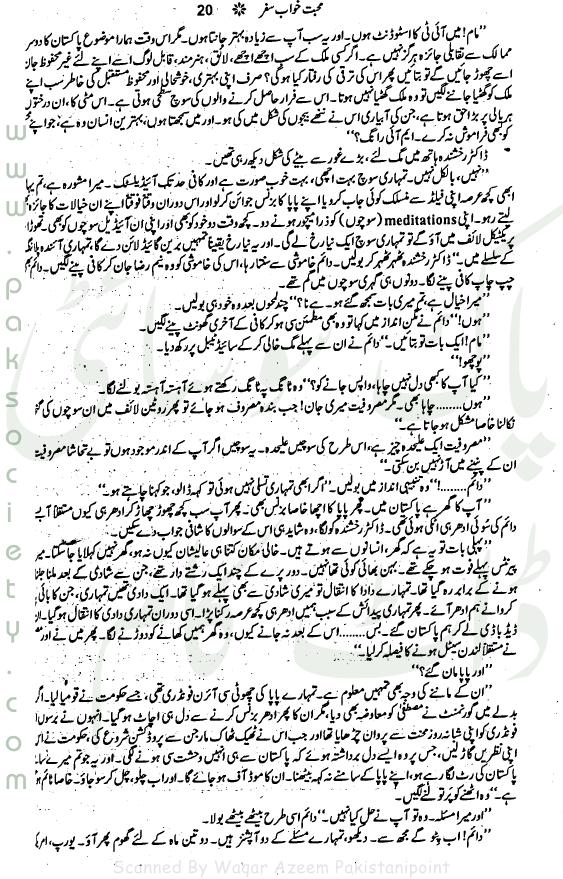 محبت خواب سفر ✻ 20
’’مام! میں آئی ٹی کا اسٹوڈنٹ ہوں۔ اور یہ سب آپ سے زیادہ بہتر جانتا ہوں۔ مگر اس وقت ہمارا موضوع پاکستان کا دوسر
ممالک سے تقابلی جائزہ ہرگز نہیں ہے۔ اگر کسی ملک کے سب اچھے اچھے، لائق، ہنرمند، قابل لوگ اسے اپنے لئے غیر محفوظ جان
اسے چھوڑ جائیں گے تو بتائیں پھر اس کی ترقی کی رفتار کیا ہو گی؟ صرف اپنی بہتری، خوشحالی اور محفوظ مستقبل کی خاطر سب اپنے
ملک کو گھٹیا جاننے لگیں تو وہ ملک گھٹیا نہیں ہوتا۔ اس سے فرار حاصل کرنے والوں کی سوچ سطحی ہوتی ہے۔ اس مٹی کا، ان درختوں
ہریالی پر بڑا حق ہوتا ہے، جن کی آبیاری اس نے ننھے بیجوں کی شکل میں کی ہو۔ اور میں سمجھتا ہوں، بہترین انسان وہ ہے، جو اپنے
کو بھی فراموش نہ کرے۔ ایم آئی رانگ؟‘‘
ڈاکٹر رخشندہ ہاتھ میں مگ لئے، بڑے غور سے بیٹے کی شکل دیکھ رہی تھیں۔
’’نہیں، بالکل نہیں۔ تمہاری سوچ بہت اچھی، بہت خوب صورت ہے اور کافی حد تک آئیڈیلسٹک۔ میرا مشورہ ہے، تم یہا
ابھی کچھ عرصہ اپنی فیلڈ سے منسلک کوئی جاب کرو یا اپنے پاپا کا بزنس جوائن کر لو اور اس دوران وقتاً فوقتاً اپنے ان خیالات کا جائزہ
لیتے رہو۔ اپنی meditations (سوچوں) کو ذرا میچور ہونے دو۔ کچھ وقت دو خود کو بھی اور اپنی ان آئیڈیل سوچوں کو بھی۔ تھوڑا
پریکٹیکل لائف میں آؤ گے تو تمہاری سوچ ایک نیا رخ لے گی۔ اور یہ نیا رخ یقیناً تمہیں بہترین گائیڈ لائن دے گا، تمہاری آئندہ پلاننگ
کے سلسلے میں۔‘‘ ڈاکٹر رخشندہ ٹھہر ٹھہر کر بولیں۔ دائم خاموشی سے سنتا رہا، اس کی خاموشی کو وہ نیم رضا جان کر کافی پینے لگیں۔ دائم
چپ چاپ کافی پینے لگا۔ دونوں ہی گہری سوچوں میں گم تھے۔
’’میرا خیال ہے، تم میری بات سمجھ گئے ہو۔ ہے نا؟‘‘ چند لمحوں بعد وہ خود ہی بولیں۔
’’ہوں!‘‘ دائم نے مگن انداز میں کہا تو وہ بھی مطمئن سی ہو کر کافی کے آخری گھونٹ پینے لگیں۔
’’مام! ایک بات تو بتائیں۔‘‘ دائم نے ان سے پہلے مگ خالی کر کے سائیڈ ٹیبل پر رکھ دیا۔
’’پوچھو!‘‘
’’کیا آپ کا کبھی دل نہیں چاہا، واپس جانے کو؟‘‘ وہ ٹانگ پہ ٹانگ رکھتے ہوئے آہستہ آہستہ بولنے لگا۔
’’ہوں........ چاہا بھی۔ مگر مصروفیت میری جان! جب بندہ مصروف ہو جائے تو پھر روٹین لائف میں ان سوچوں کی
نکالنا خاصا مشکل ہو جاتا ہے۔‘‘
’’مصروفیت ایک علیحدہ چیز ہے، اس طرح کی سوچیں علیحدہ۔ یہ سوچیں اگر آپ کے اندر موجود ہوں تو بے تحاشا مصروفیت
ان کے پنپنے میں آڑ نہیں بن سکتی۔‘‘
’’دائم........!‘‘ وہ تنبیہی انداز میں بولیں۔ ’’اگر ابھی تمہاری تسلی نہیں ہوئی تو کہہ ڈالو، جو کہنا چاہتے ہو۔‘‘
’’آپ کا گھر ہے پاکستان میں۔ پھر پاپا کا اچھا خاصا بزنس بھی۔ پھر آپ سب کچھ چھوڑ چھاڑ کر ادھر ہی کیوں مستقلاً آ
دائم کی سوئی ادھر ہی اٹکی ہوئی تھی۔ ڈاکٹر رخشندہ کو لگا، وہ شاید ہی اس کے سوالوں کا شافی جواب دے سکیں۔
’’پہلی بات تو یہ ہے کہ گھر، انسانوں سے ہوتے ہیں۔ خالی مکان کتنا ہی عالیشان کیوں نہ ہو، گھر نہیں کہلایا جا سکتا۔ میر
پیرنٹس پہلے فوت ہو چکے تھے۔ بہن بھائی کوئی تھا نہیں۔ دور پرے کے چند ایک رشتے دار تھے، جن سے شادی کے بعد ملنا جلنا
ہونے کے برابر رہ گیا تھا۔ تمہارے دادا کا انتقال تو میری شادی سے بھی پہلے ہو گیا تھا۔ ایک دادی تھیں تمہاری، جن کا بائی
کروانے ہم ادھر آئے۔ پھر تمہاری پیدائش کے سبب ہمیں ادھر ہی کچھ عرصہ رکنا پڑا۔ اسی دوران تمہاری دادی کا انتقال ہو گیا۔ ان
ڈیڈ باڈی لے کر ہم پاکستان گئے۔ بس........ اس کے بعد نہ جانے کیوں، وہ گھر ہمیں کھانے کو دوڑنے لگا۔ پھر میں نے اور
نے مستقلاً لندن سیٹل ہونے کا فیصلہ کر لیا۔‘‘
’’اور پاپا مان گئے؟‘‘
’’ان کے ماننے کی وجہ بھی تمہیں معلوم ہے۔ تمہارے پاپا کی چھوٹی سی آئرن فونڈری تھی، جسے حکومت نے قومیا لیا۔ اگر
بدلے میں گورنمنٹ نے مصطفیٰ کو معاوضہ بھی دیا، مگر ان کا پھر ادھر بزنس کرنے سے دل ہی اچاٹ ہو گیا۔ انہوں نے برسوں
فونڈری کو اپنی شبانہ روز محنت سے پروان چڑھایا تھا اور جب اس نے ٹھیک ٹھاک مارجن سے پروڈکشن شروع کی، حکومت نے اس
اپنی نظریں گاڑ لیں، جس پر وہ ایسے دل برداشتہ ہوئے کہ پاکستان سے ہی انہیں وحشت سی ہونے لگی۔ اور یہ جو تم میرے سا
پاکستان کی رٹ لگا رہے ہو، اپنے پاپا کے سامنے نہ کہہ بیٹھنا۔ ان کا موڈ آف ہو جائے گا۔ اور اب چلو، چل کر سو جاؤ۔ خاصا ٹائم ہو
ہے۔‘‘ وہ اٹھنے کو پر تولنے لگیں۔
’’اور میرا مسئلہ۔ وہ تو آپ نے حل کیا نہیں۔‘‘ دائم اسی طرح بیٹھے بیٹھے بولا۔
’’دائم! اب پٹو گے مجھ سے۔ دیکھو، تمہارے مسئلے کے دو آپشنز ہیں۔ دو تین ماہ کے لئے گھوم پھر آؤ۔ یورپ، امر
www.paksociety.com
Scanned By Waqar Azeem Pakistanipoint